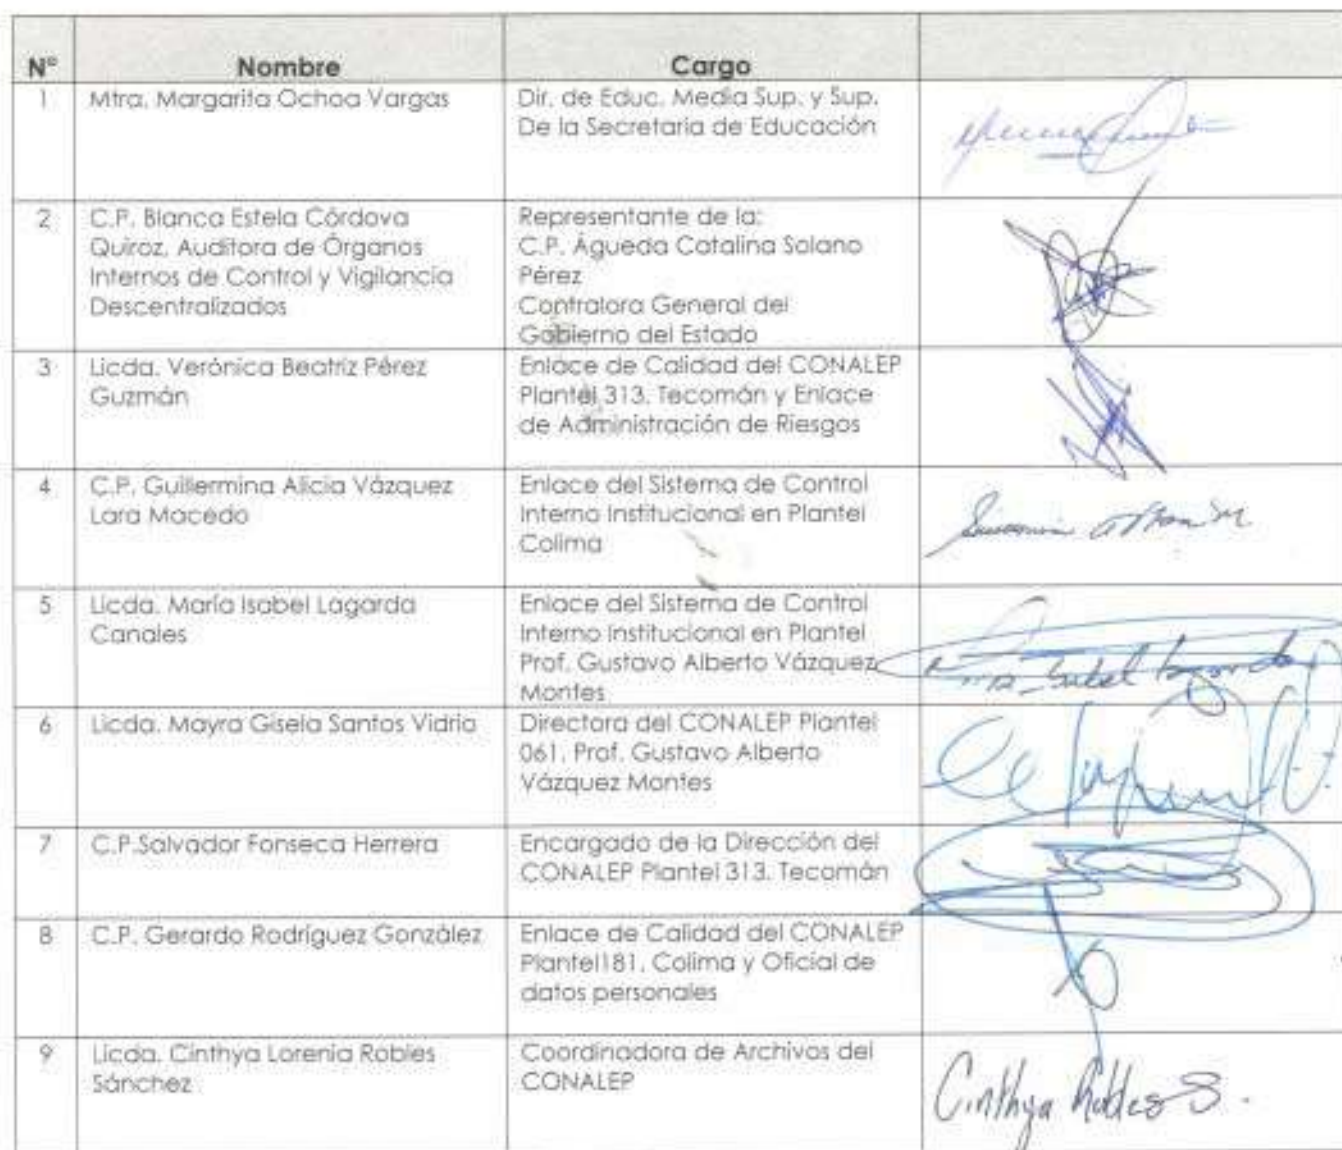 N° Nombre Cargo
1 Mtra. Margarita Ochoa Vargas Dir. de Educ. Media Sup. y Sup.
De la Secretaria de Educación
2 C.P. Blanca Estela Córdova Representante de la:
Quiroz, Auditora de Órganos C.P. Águeda Catalina Solano
Internos de Control y Vigilancia Pérez
Descentralizados Contralora General del
Gobierno del Estado
3 Licda. Verónica Beatriz Pérez Enlace de Calidad del CONALEP
Guzmán Plantel 313, Tecomán y Enlace
de Administración de Riesgos
4 C.P. Guillermina Alicia Vázquez Enlace del Sistema de Control
Lara Macedo Interno Institucional en Plantel
Colima
5 Licda. María Isabel Lagarda Enlace del Sistema de Control
Canales Interno Institucional en Plantel
Prof. Gustavo Alberto Vázquez
Montes
6 Licda. Mayra Gisela Santos Vidrio Directora del CONALEP Plantel
061, Prof. Gustavo Alberto
Vázquez Montes
7 C.P.Salvador Fonseca Herrera Encargado de la Dirección del
CONALEP Plantel 313, Tecomán
8 C.P. Gerardo Rodríguez González Enlace de Calidad del CONALEP
Plantel181, Colima y Oficial de
datos personales
9 Licda. Cinthya Lorenia Robles Coordinadora de Archivos del
Sánchez CONALEP
Cinthya Robles S.